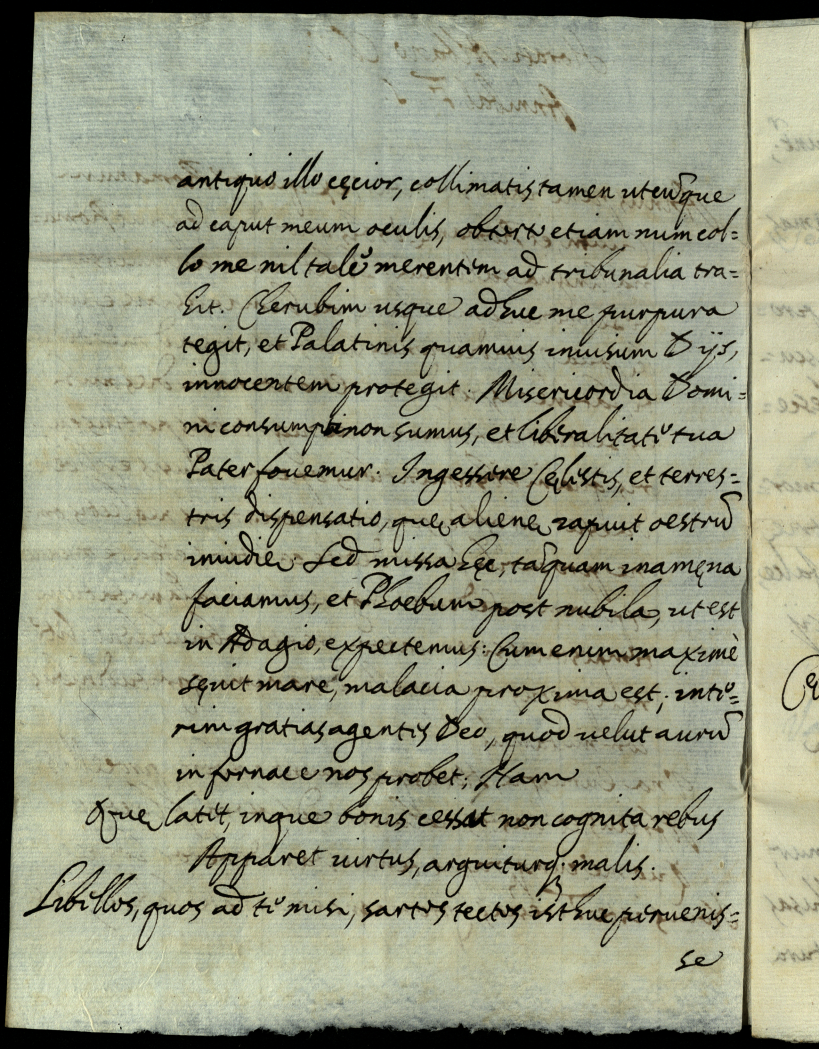 antiquo illo cęcior, collimatis tamen utcũque
ad caput meum oculis, obtorto etiam num col=
lo me nil tale merentem ad tribunalia tra=
hit. Cherubim usque adhuc me purpura
tegit, et Palatinis quamuis inuisum Dijs,
innocentem protegit. Misericordia Domi=
ni consumpti non sumus, et liberalitate tua
Pater fouemur. Ingessere Cęlestis, et terres=
tris dispensatio, quę alienę rapuit oestrũ
inuidię. Sed missa hęc, tãquam inamęna
faciamus, et Phoebum post nubila, ut est
in Adagio, expectemus: Cum enim maximè
sęuit mare, malacia proxima est; inte=
rim gratias agentes Deo, quod uelut aurũ
in fornace nos probet; Nam
Quę latet, inque bonis cessat non cognita rebus
Apparet uirtus, arguiturq; malis.
Libellos, quos ad te misi, sartos tectos isthuc peruenis=
se